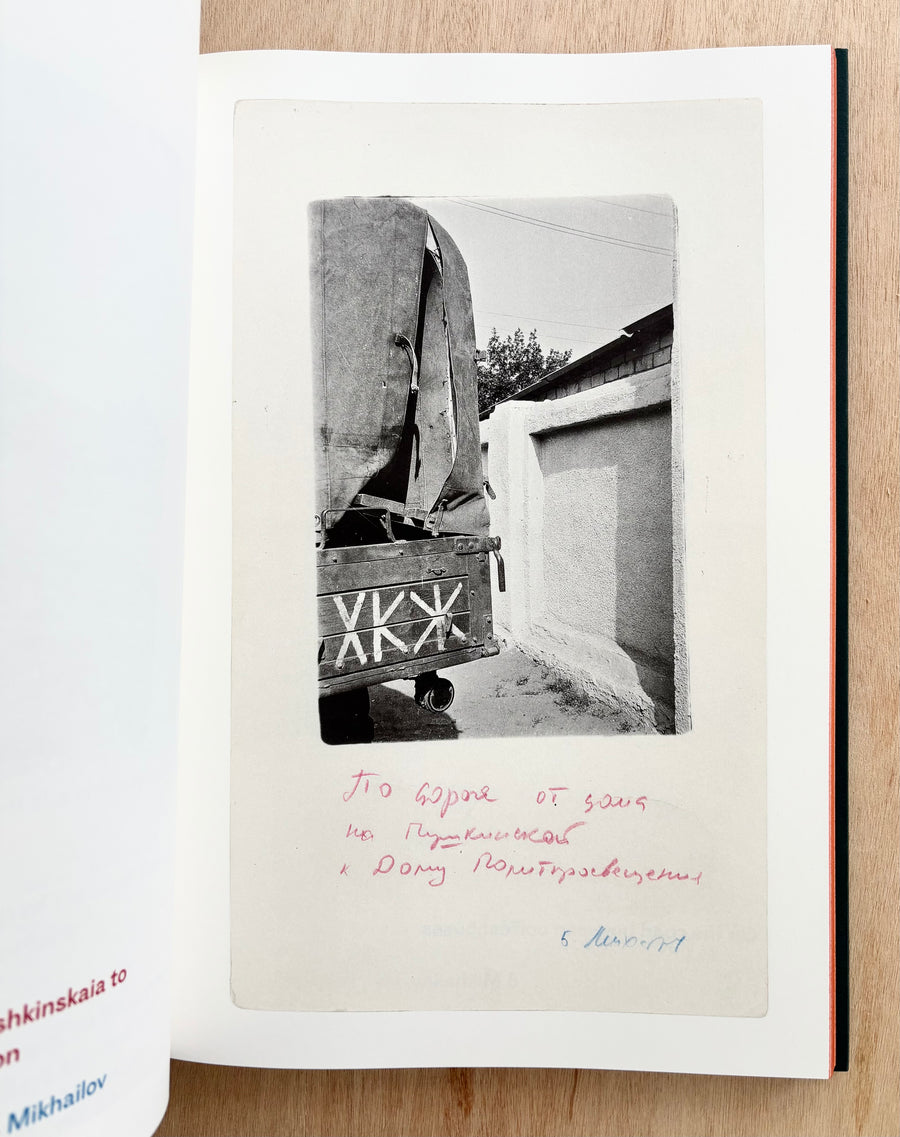 shkinskaia to
on
Mikhailov
ЖКЖ
По дороге от дома
на Пушкинской
к Дому Политпросвещения
Б